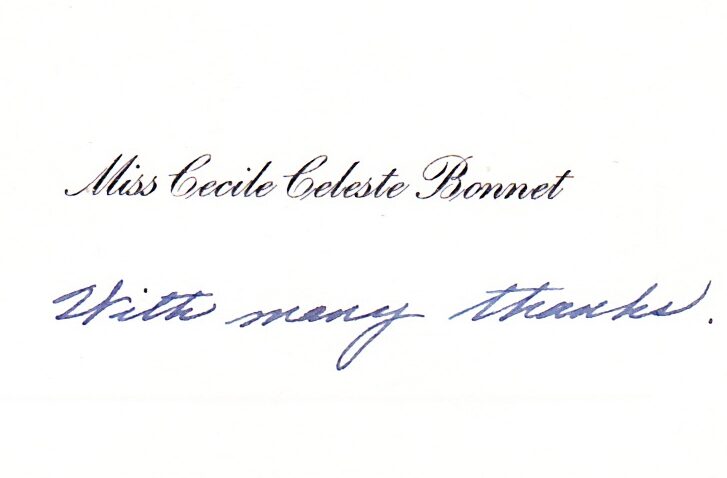 Miss Cecile Celeste Bonnet
With many thanks.